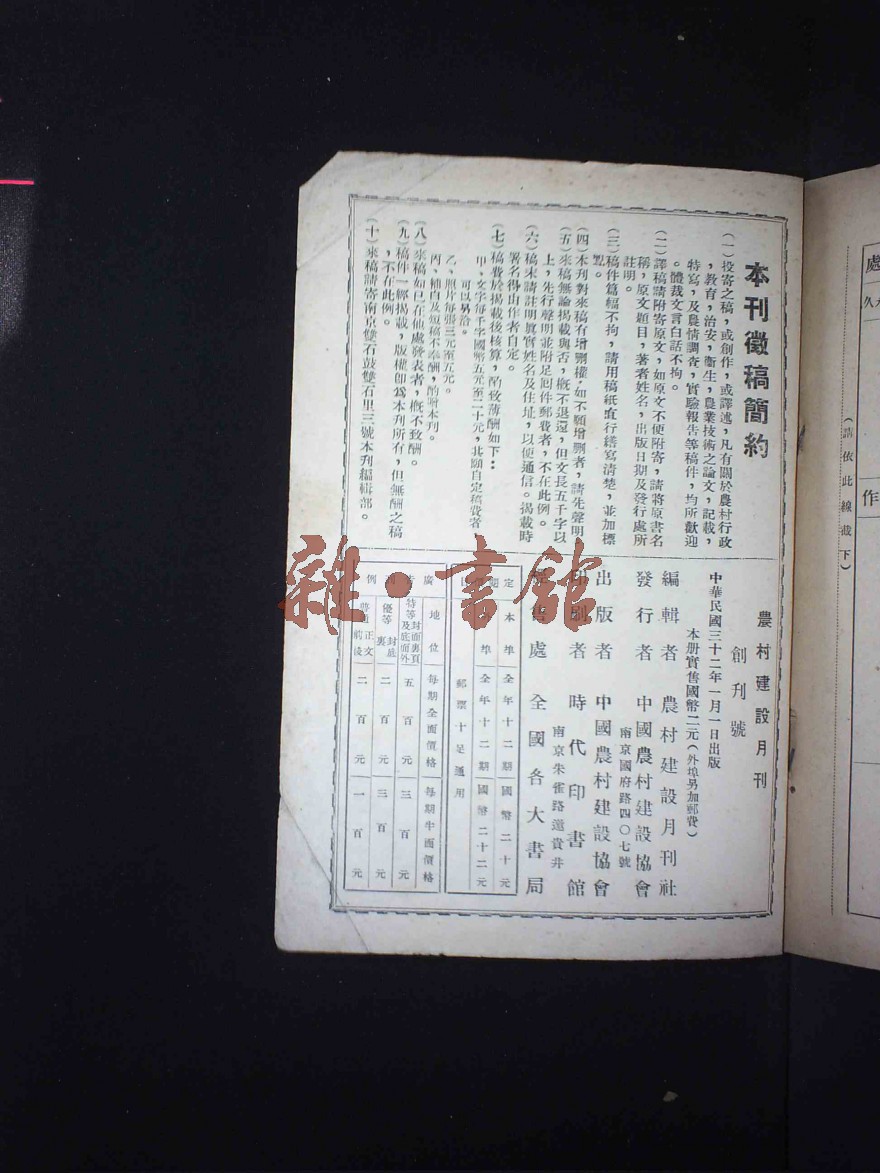 本刊徵稿簡約
(一)投寄之稿,或創作,或譯述,凡有關於農村行政
,教育,治安,衞生,農業技術之論文,記載,
特寫,及農情調查,實驗報告等稿件,均所歡迎
。體裁文言白話不拘。
(二)譯稿請附寄原文,如原文不便附寄,請將原書名
稱,原文題目,著者姓名,出版日期及發行處所
註明。
(三)稿件篇幅不拘,請用稿紙直行繕寫清楚,並加標
點。
(四)本刊對來稿有增刪權,如不願增刪者,請先聲明
(五)來稿無論揭載與否,槪不退還,但文長五千字以
上,先行聲明並附足囘件郵費者,不在此例。
(六)稿末請註明眞實姓名及住址,以便通信。揭載時
署名得由作者自定。
(七)稿費於揭載後核算,酌致薄酬如下:
甲、文字每千字國幣五元至二十元,其願自定稿費者
可以另洽。
乙、照片每張三元至五元。
丙、補白及短稿不奉酬,酌贈本刊。
(八)來稿如已在他處發表者,槪不致酬。
(九)稿件一經揭載,版權卽爲本刊所有,但無酬之稿
,不在此例。
(十)來稿請寄南京雙石鼓雙石里三號本刊編輯部。
農村建設月刊
創刊號
中華民國三十二年一月一日出版
本册實售國幣二元(外埠另加郵費)
編輯者 農村建設月刊社
發行者 中國農村建設協會
南京國府路四〇七號
出版者 中國農村建設協會
印刷者 時代印書館
南京朱雀路邀貴井
售處 全國各大書局
定
本埠 全年十二期 國幣二十元
埠 全年十二期 國幣二十二元
郵票十足通用
廣 例
地位 每期全面價格 每期半面價格
特等 封面裏頁及底面外 五百元 三百元
優等 封底裏 二百元 三百元
普通 正文前後 二百元 一百元
雜·書館
處
久
(請依此線截下)
作